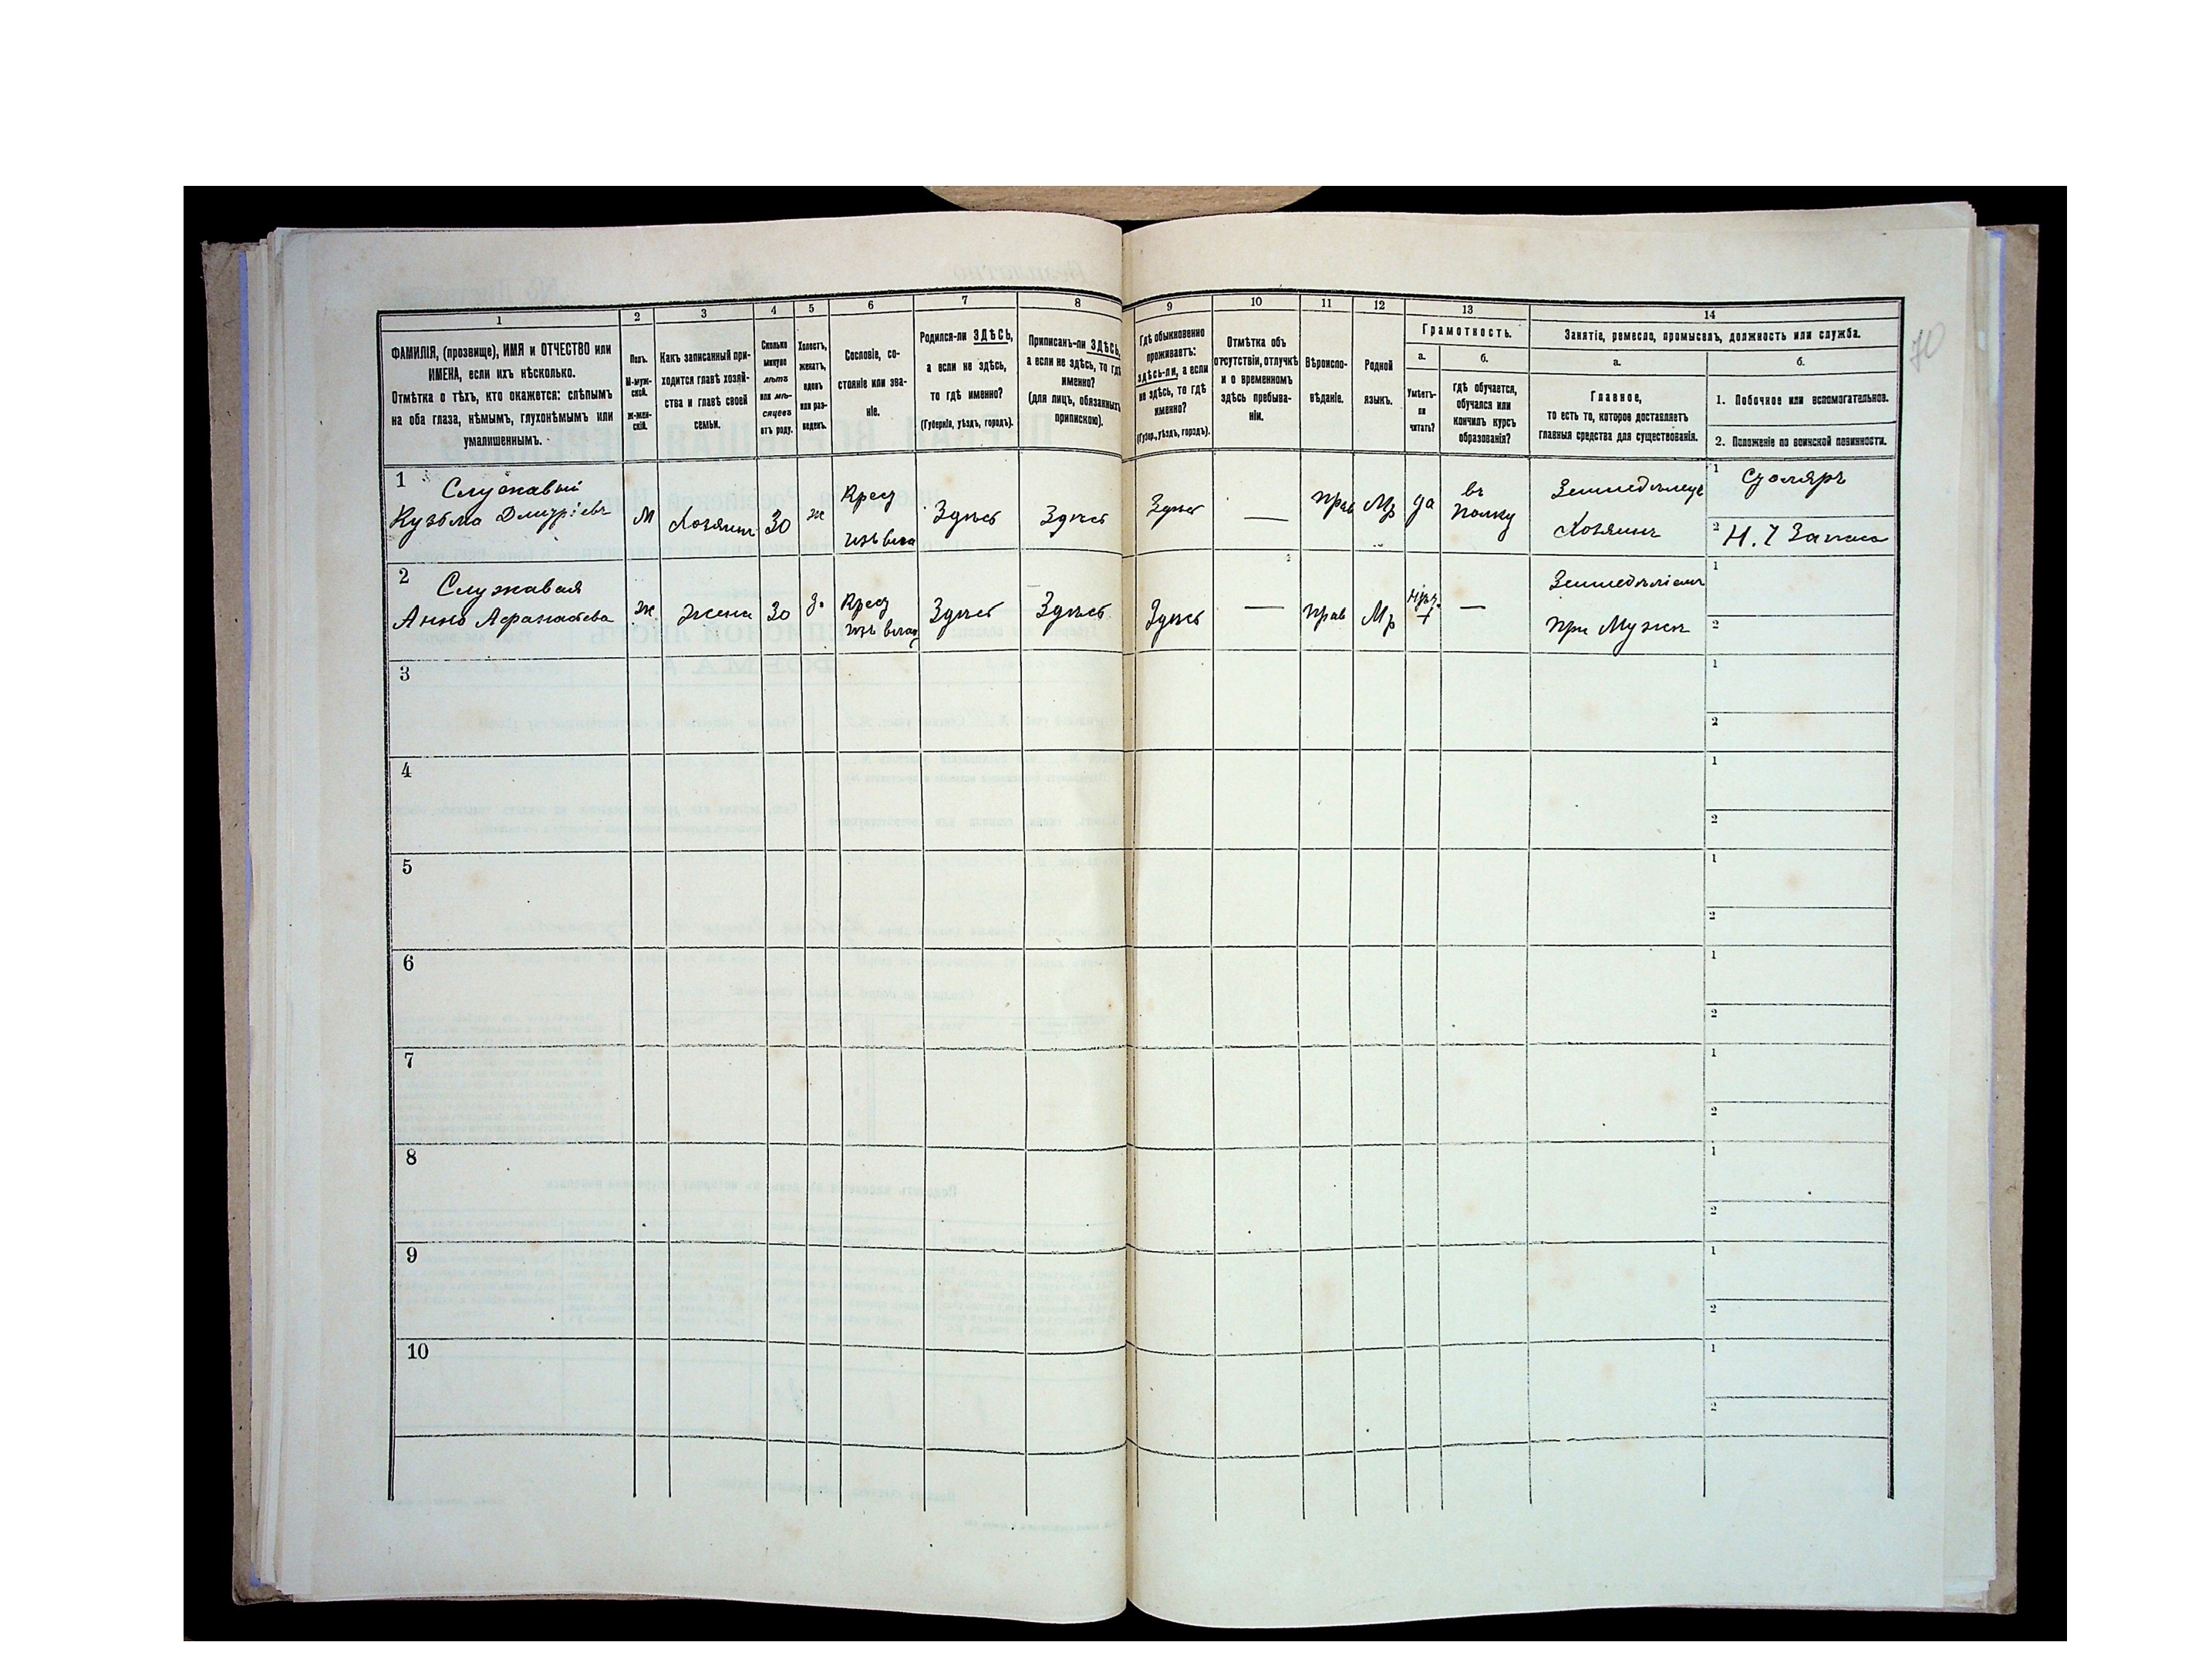 1
2
3
4
5
6
7
8
9
10
11
12
13
14
70
ФАМИЛІЯ, (прозвище), ИМЯ и ОТЧЕСТВО или
ИМЕНА, если ихъ нѣсколько.
Отмѣтка о тѣхъ, кто окажется: слѣпымъ
на оба глаза, нѣмымъ, глухонѣмымъ или
умалишеннымъ.
Полъ.
М-муж-
ской.
ж-жен-
скій.
Какъ записанный при-
ходится главѣ хозяй-
ства и главѣ своей
семьи.
Сколько
минуло
лѣтъ
или мѣ-
сяцевъ
отъ роду.
Холостъ,
женатъ,
вдовъ
или раз-
веденъ.
Сословіе, со-
стояніе или зва-
ніе.
Родился-ли ЗДѢСЬ,
а если не здѣсь,
то гдѣ именно?
(Губернія, уѣздъ, городъ).
Приписанъ-ли ЗДѢСЬ,
а если не здѣсь, то гдѣ
именно?
(для лицъ, обязанныхъ
припискою).
Гдѣ обыкновенно
проживаетъ:
здѣсь-ли, а если
не здѣсь, то гдѣ
именно?
(Губер., уѣздъ, городъ).
Отмѣтка объ
отсутствіи, отлучкѣ
и о временномъ
здѣсь пребыва-
ніи.
Вѣроиспо-
вѣданіе.
Родной
языкъ.
Грамотность.
а.
Умѣетъ-
ли
читать?
б.
гдѣ обучается,
обучался или
кончилъ курсъ
образованія?
Занятіе, ремесло, промыселъ, должность или служба.
а.
Главное,
то есть то, которое доставляетъ
главныя средства для существованія.
б.
1. Побочное или вспомогательное.
2. Положеніе по воинской повинности.
1 Служавый
Кузьма Дмитріевъ
М
Хозяинъ
30
ж
Крест
изъ влад
Здѣсь
Здѣсь
Здѣсь
—
прав
Мр
да
въ
полку
Земледѣлецъ
Хозяинъ
1 Столяръ
2 Н. Ч Запаса
2 Служавая
Анна Афанасьева
ж
жена
30
з.
Крест
изъ влад
Здѣсь
Здѣсь
Здѣсь
—
прав
Мр
—
Земледѣліемъ
при Мужѣ
1
2
3
1
2
4
1
2
5
1
2
6
1
2
7
1
2
8
1
2
9
1
2
10
1
2